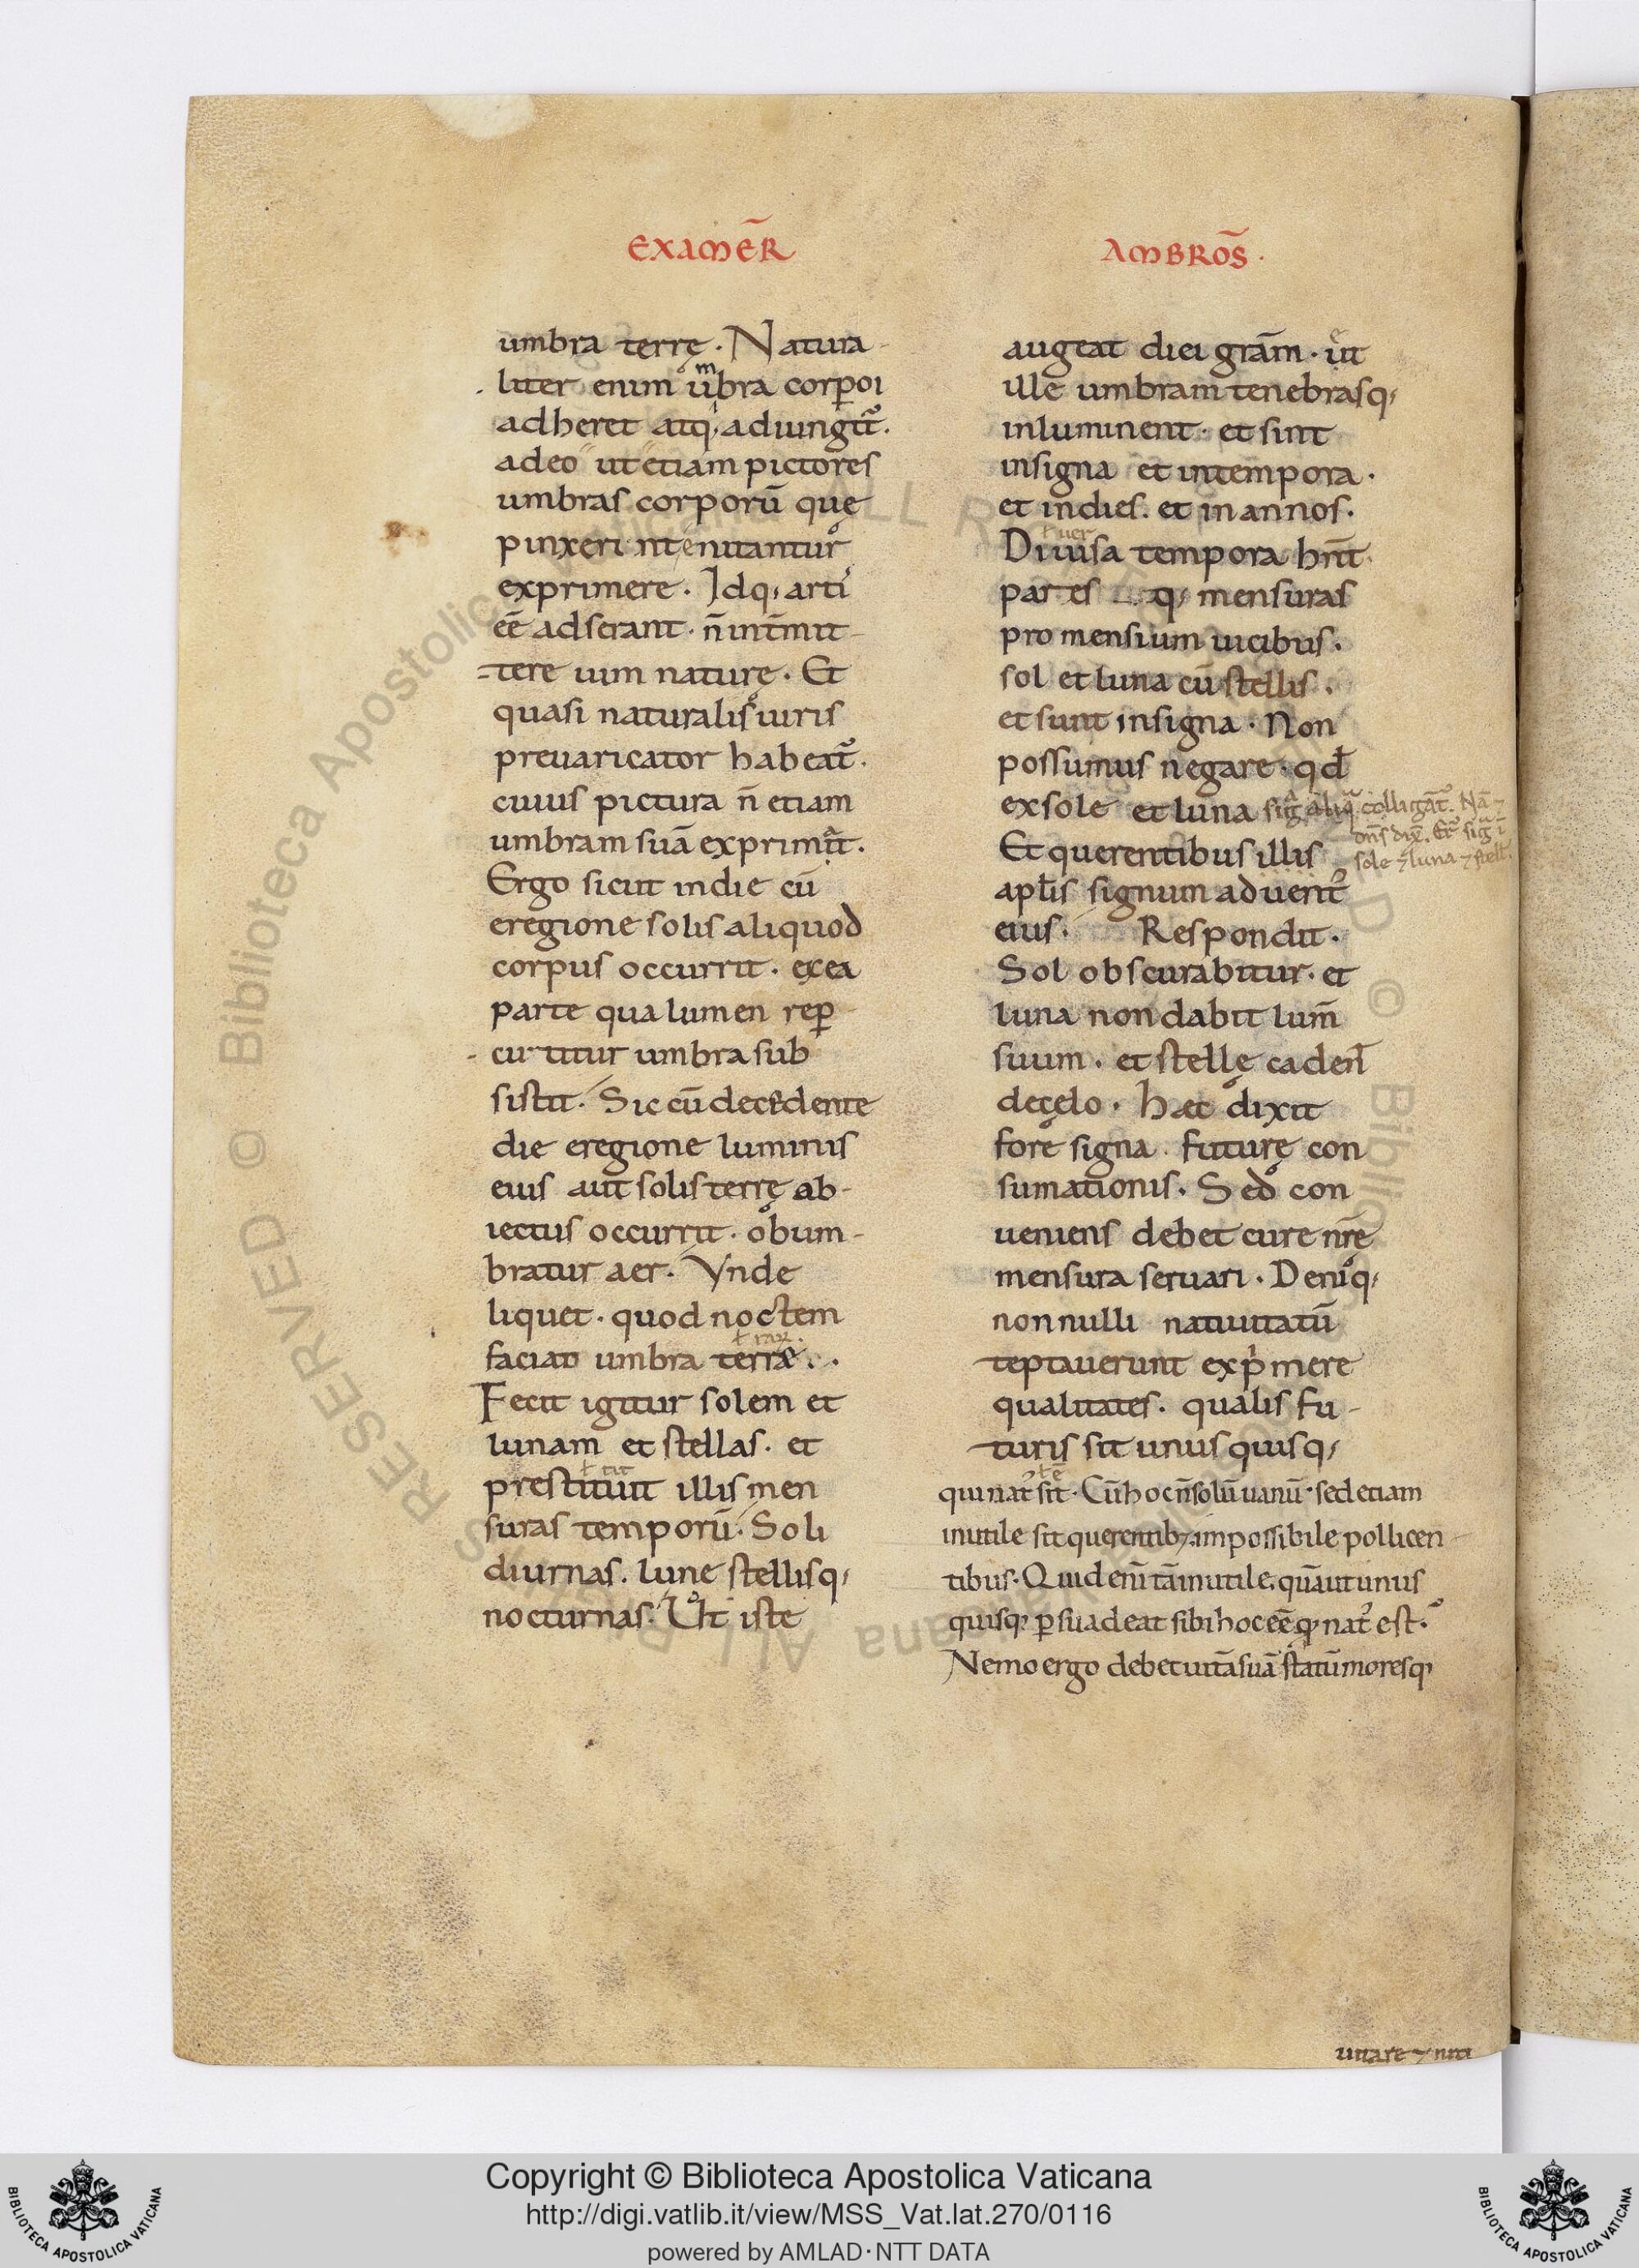 EXAMER̄
umbra terrę. Natura-
liter enim um̄bra corpori
adheret atq; adiungit̃.
adeo ut etiam pictores
umbras corporū que
pinxerint enitantur
exprimere. Idq; arti
eē adserant. n̄ int̄mit-
tere uim naturę. Et
quasi naturalis iuris
preuaricator habeat̃.
cuius pictura n̄ etiam
umbram suā exprimit.
Ergo sicut indie cū
eregione solis aliquod
corpus occurrit. exea
parte qua lumen rep̱-
cutitur umbra sub
sistit. Sic cū decedente
die eregione luminis
eius aut solis terrę ob-
iectus occurrit. obum-
bratur aer. Vnde
liquet. quod noctem
faciat umbra terrae..
Fecit igitur solem et
lunam et stellas. et
prestituit illis men
suras temporū. Soli
diurnas. lune stellisq;
nocturnas. Ut iste
AMBROS̄.
augeat diei grām. ut
ille umbram tenebrasq;
inluminent. et sint
insigna et intempora.
et indies. et in annos.
Diuisa tempora hn̄t
partes q; mensuras
pro mensium uicibus.
sol et luna cū stellis.
et sunt insigna. Non
possumus negare. qđ
exsole et luna
Et querentibus illis
sole ⁊ luna ⁊ stell
apłis signum aduent᾽
eius. Respondit.
Sol obscurabitur. et
luna non dabit lum̄
suum. et stellę caden̄
decęlo. haec dixit
fore signa futurę con
sumationis. Sed con
ueniens debet cure nr̄ę
mensura seruari. Deniq;
non nulli natiuitatū
teptauerunt expͥmere
qualitates. qualis fu-
turis sit unus quisq;
qui nat᾽ sit. Cū hoc n̄ solū uanū. sed etiam
inutile sit querentib; impossibile pollicen
tibus. Quid enī tā inutile, quā ut unus
quisq; p̱suadeat sibi hoc eē qđ nat᾽ est.
Nemo ergo debet uitā suā statū moresq;
uitare ⁊ niti
Copyright © Biblioteca Apostolica Vaticana
http://digi.vatlib.it/view/MSS_Vat.lat.270/0116
powered by AMLAD·NTT DATA
BIBLIOTECA APOSTOLICA VATICANA
BIBLIOTECA APOSTOLICA VATICANA